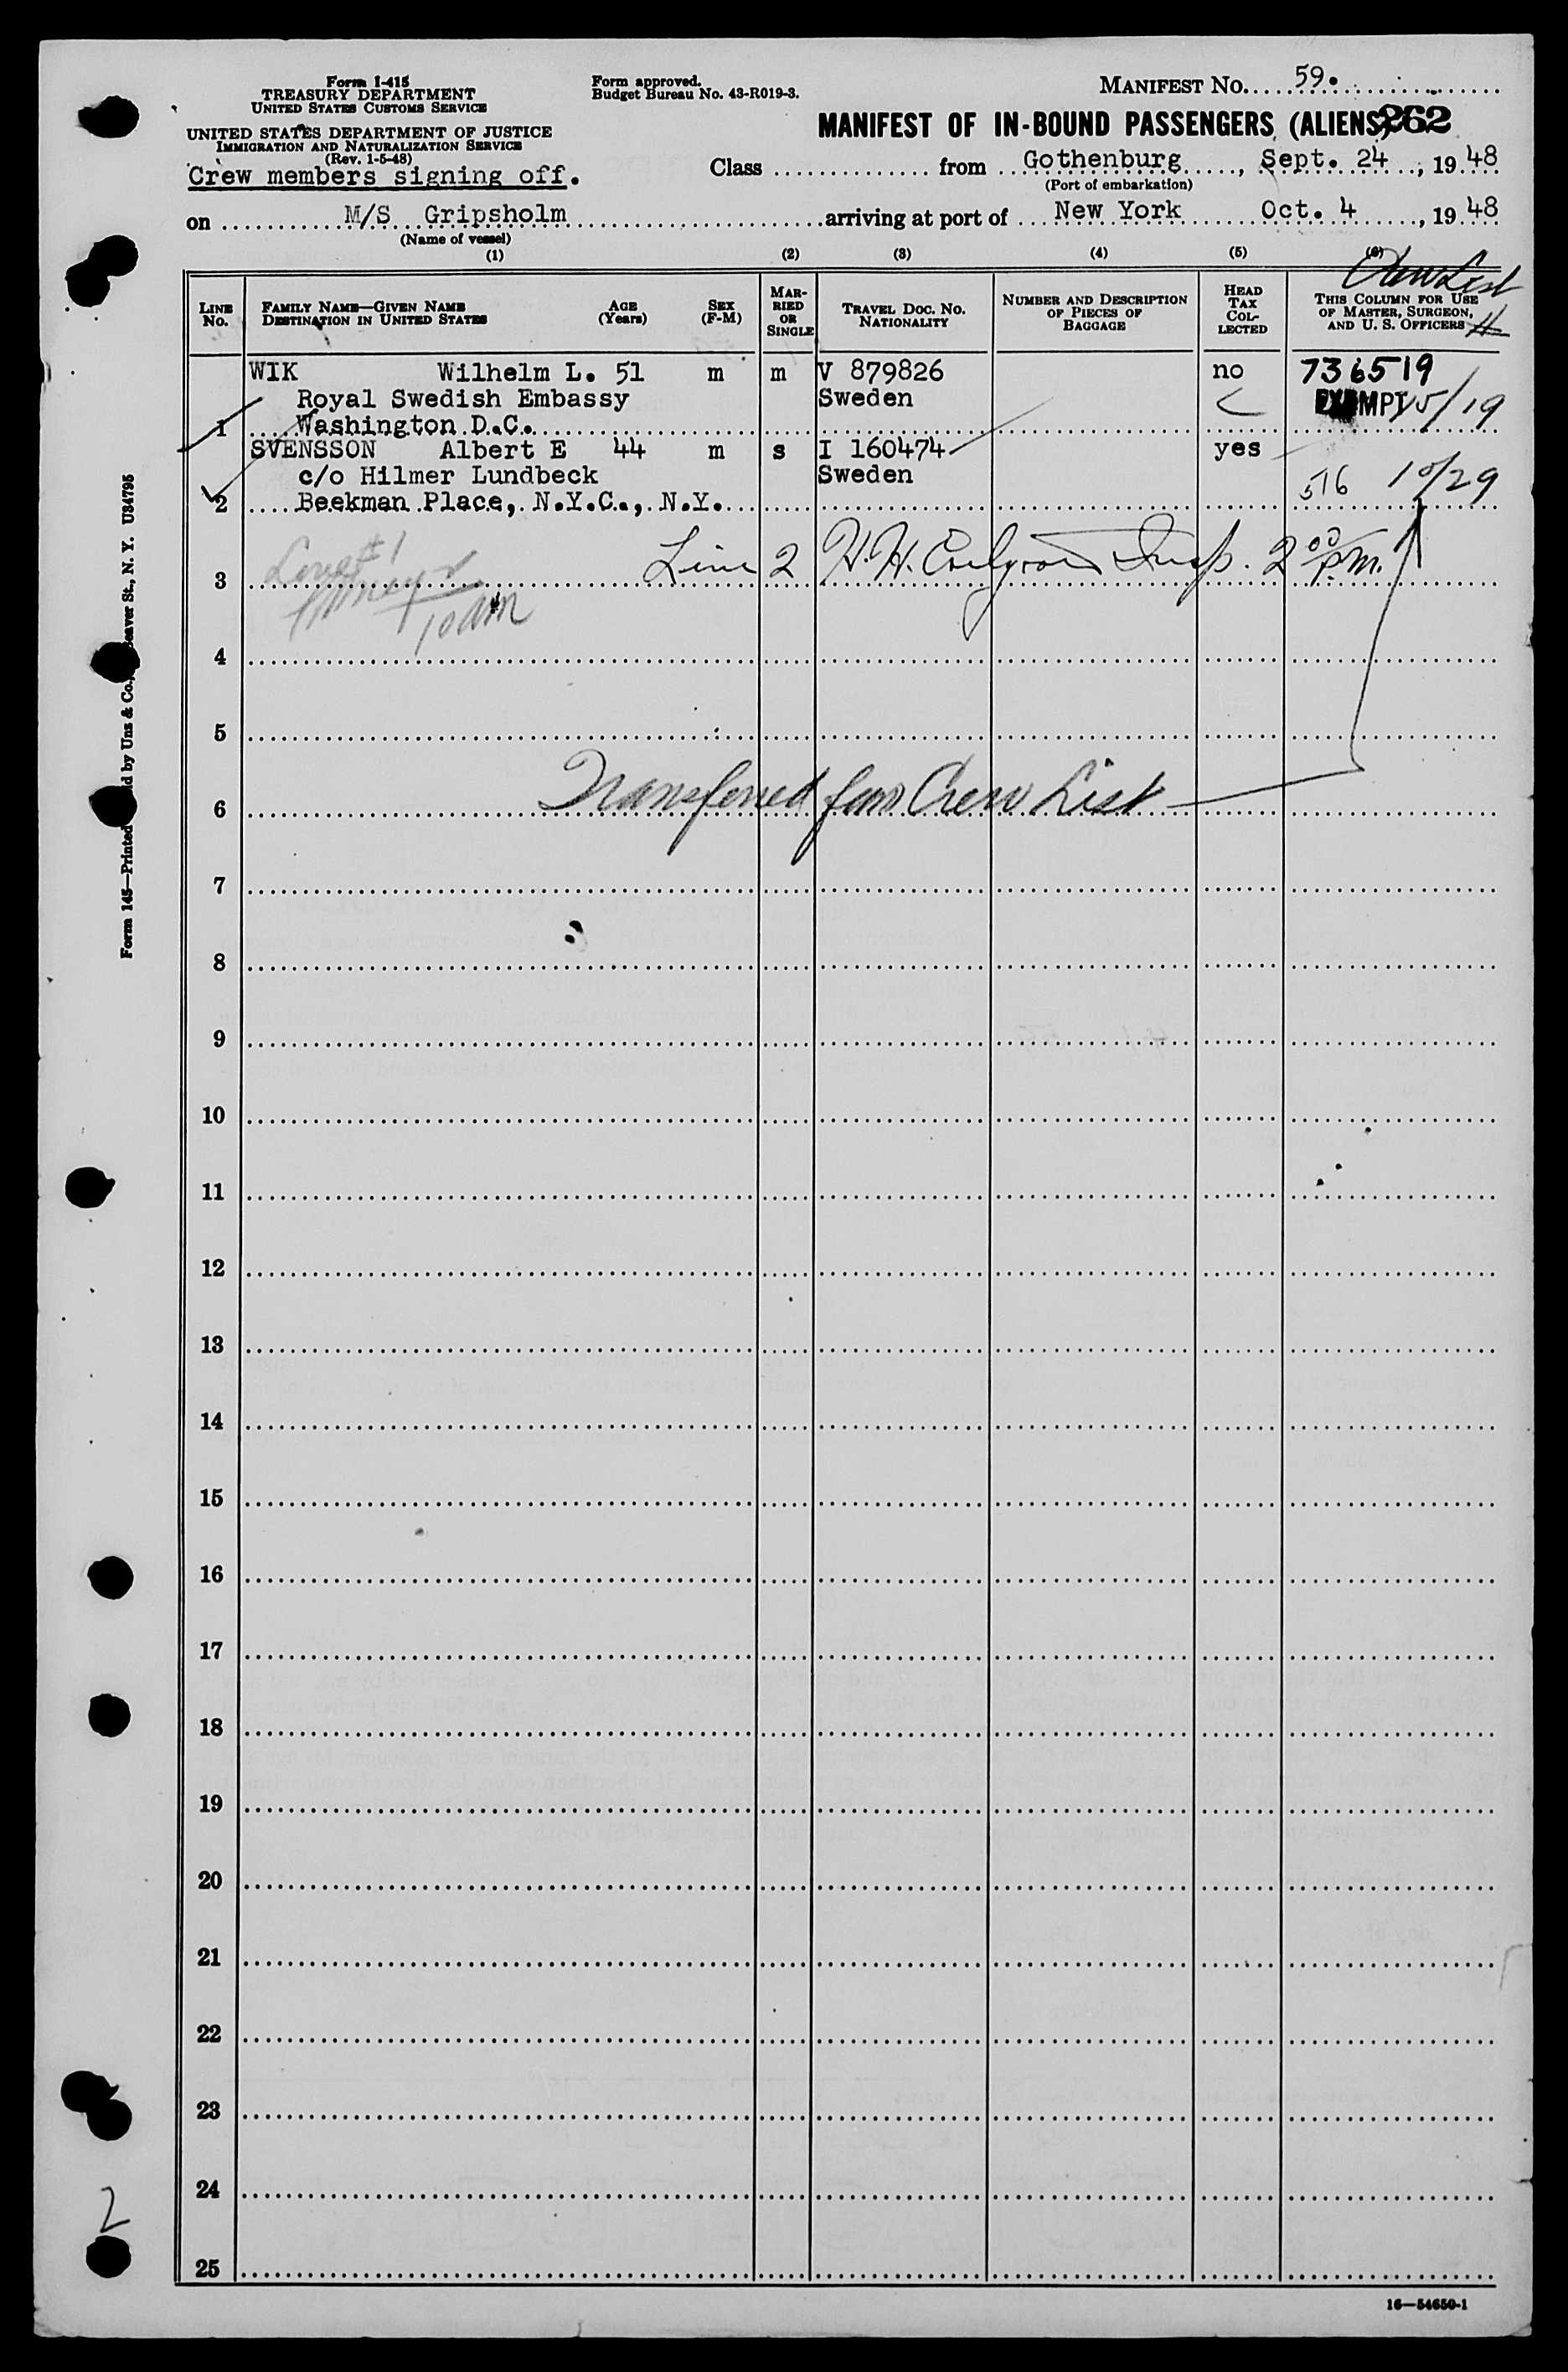 Form I-415
TREASURY DEPARTMENT
UNITED STATES CUSTOMS SERVICE
UNITED STATES DEPARTMENT OF JUSTICE
IMMIGRATION AND NATURALIZATION SERVICE
(Rev. 1-5-48)
Crew members signing off.
Form approved.
Budget Bureau No. 43-R019-3.
MANIFEST NO. 59.
MANIFEST OF IN-BOUND PASSENGERS (ALIENS) 262
Class from Gothenburg, Sept. 24, 1948
(Port of embarkation)
on M/S Gripsholm arriving at port of New York Oct. 4, 1948
(Name of vessel)
(1) (2) (3) (4) (5) (6)
Crew List
LINE NO.
FAMILY NAME—GIVEN NAME
DESTINATION IN UNITED STATES
AGE (Years)
SEX (F-M)
MARRIED OR SINGLE
TRAVEL DOC. NO.
NATIONALITY
NUMBER AND DESCRIPTION OF PIECES OF BAGGAGE
HEAD TAX COLLECTED
THIS COLUMN FOR USE OF MASTER, SURGEON, AND U. S. OFFICERS
WIK Wilhelm L. 51 m m V 879826 no 736519
Royal Swedish Embassy Sweden EXEMPT 15/19
1 Washington D.C.
SVENSSON Albert E 44 m s I 160474 yes
c/o Hilmer Lundbeck Sweden 516 10/29
2 Beekman Place, N.Y.C., N.Y.
#1
10 am
3 Line 2 H.H. Insp. 2 00 p.m.
4
5
6 Transferred from Crew List
7
8
9
10
11
12
13
14
15
16
17
18
19
20
21
22
23
24
25
16—54650-1
Form 145—Printed and by Unz & Co., Beaver St., N. Y. U34795
2